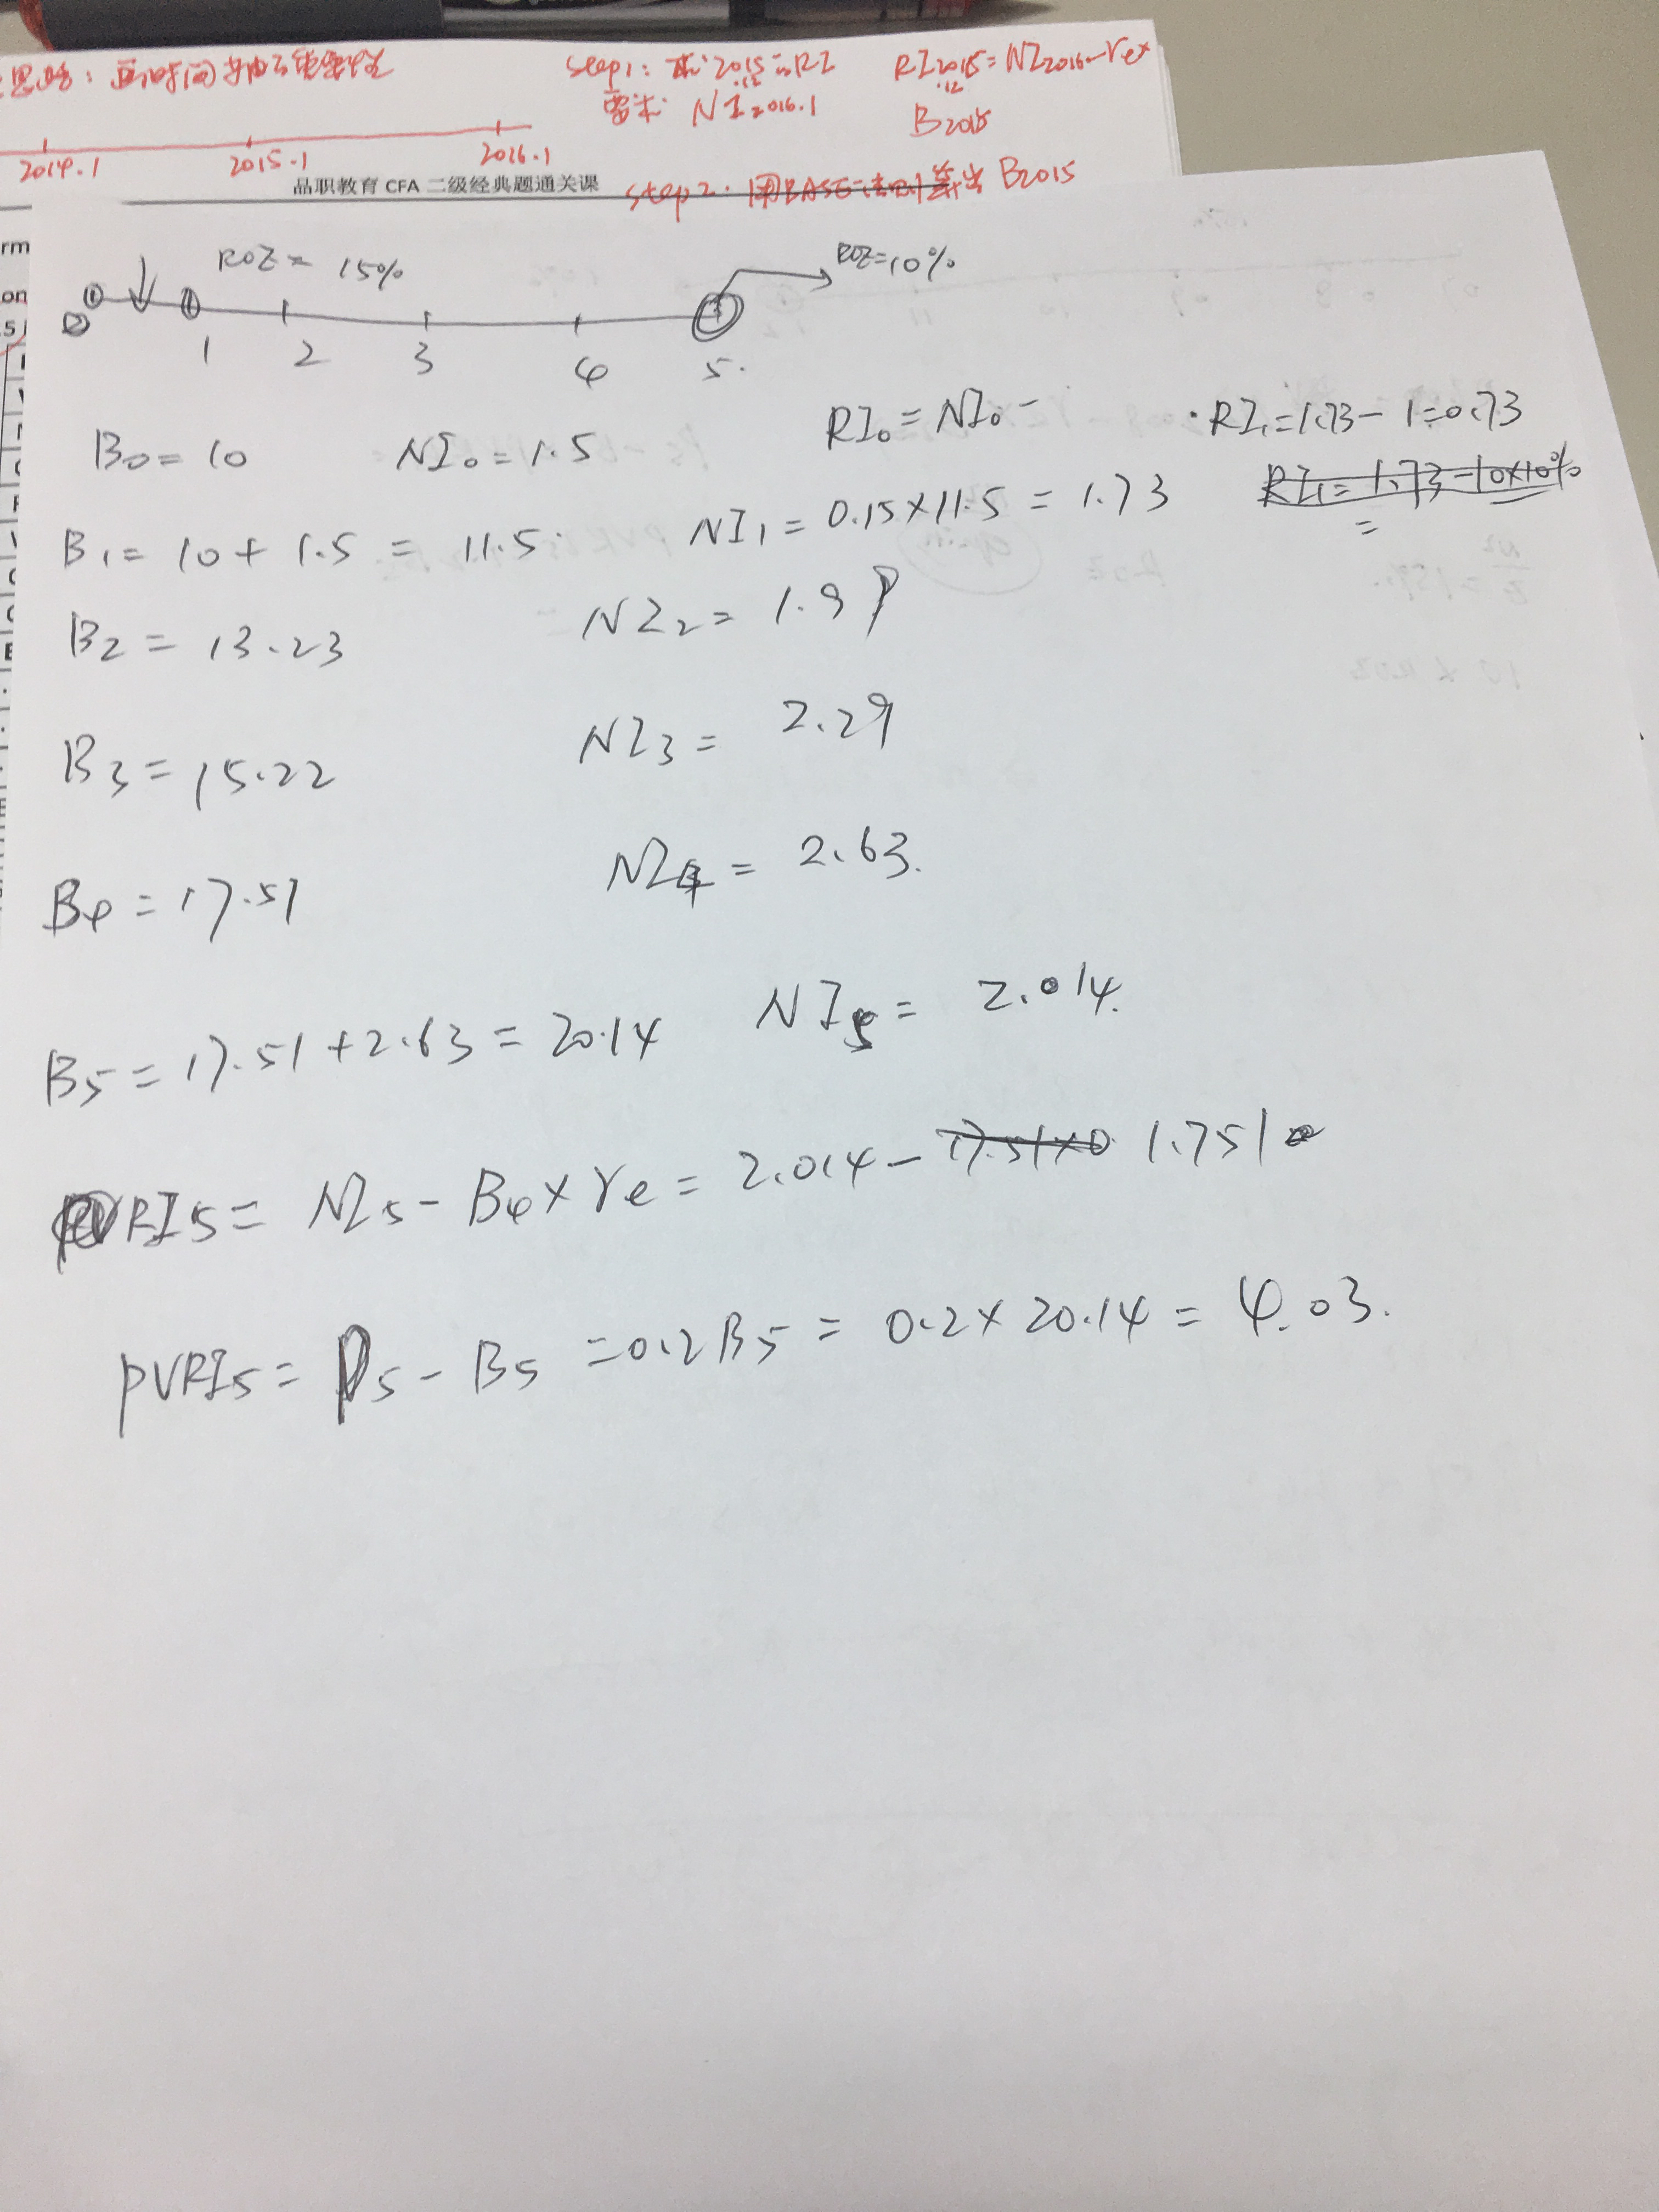 思路：画时间轴
step1: 求2015.12的RI RI2015.12=NI2016-re×
需求 NI2016.1 B2015
2014.1 2015.1 2016.1
品职教育 CFA 二级经典题通关课 step2. 用BASE法则算出B2015
rm
on
5
ROE = 15% ROE=10%
0 1 2 3 4 5.
B0=10 NI0=1.5 RI0=NI0- ·RI1=1.73-1=0.73
B1=10+1.5=11.5 NI1=0.15×11.5=1.73 RI1=1.73-10×10%
=
B2=13.23 NI2=1.99
B3=15.22 NI3=2.29
B4=17.51 NI4=2.63.
B5=17.51+2.63=20.14 NI5=2.014.
RI5=NI5-B4×re=2.014-17.51×0 1.751
PVRI5=P5-B5=0.2B5=0.2×20.14=4.03.